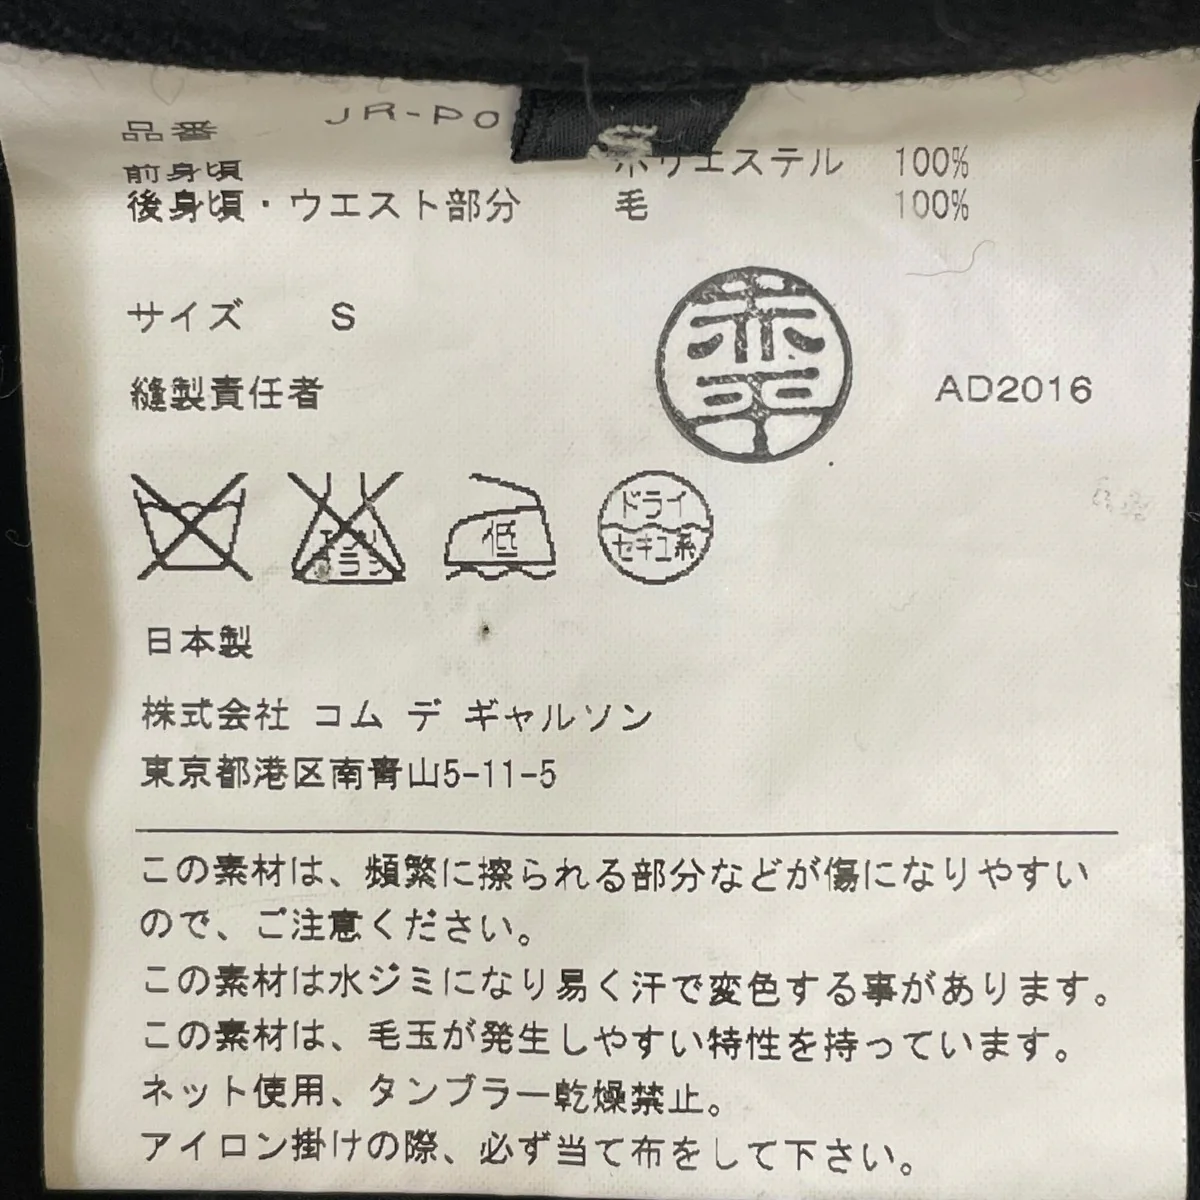 品番 JR-P0
前身頃 ポリエステル 100%
後身頃・ウエスト部分 毛 100%
サイズ S
縫製責任者
AD2016
エンソ
サラシ
低
ドライ
セキユ系
日本製
株式会社 コム デ ギャルソン
東京都港区南青山5-11-5
この素材は、頻繁に擦られる部分などが傷になりやすい
ので、ご注意ください。
この素材は水ジミになり易く汗で変色する事があります。
この素材は、毛玉が発生しやすい特性を持っています。
ネット使用、タンブラー乾燥禁止。
アイロン掛けの際、必ず当て布をして下さい。